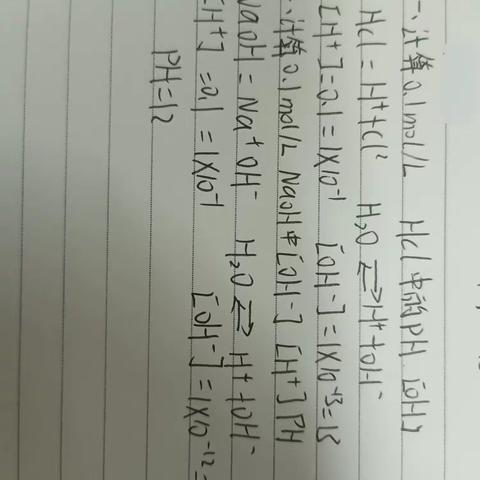 一、计算0.1mol/L HCl中的PH [OH]
HCl = H⁺+Cl² H₂O ⇌ H⁺+OH⁻
[H⁺]=0.1=1X10⁻¹ [OH⁻]=1X10⁻¹³=13
、计算0.1mol/L NaOH中[OH⁻] [H⁺] PH
NaOH = Na⁺OH⁻ H₂O ⇌ H⁺+OH⁻
[H⁺]=0.1=1X10⁻¹ [OH⁻]=1X10⁻¹²=
PH=12